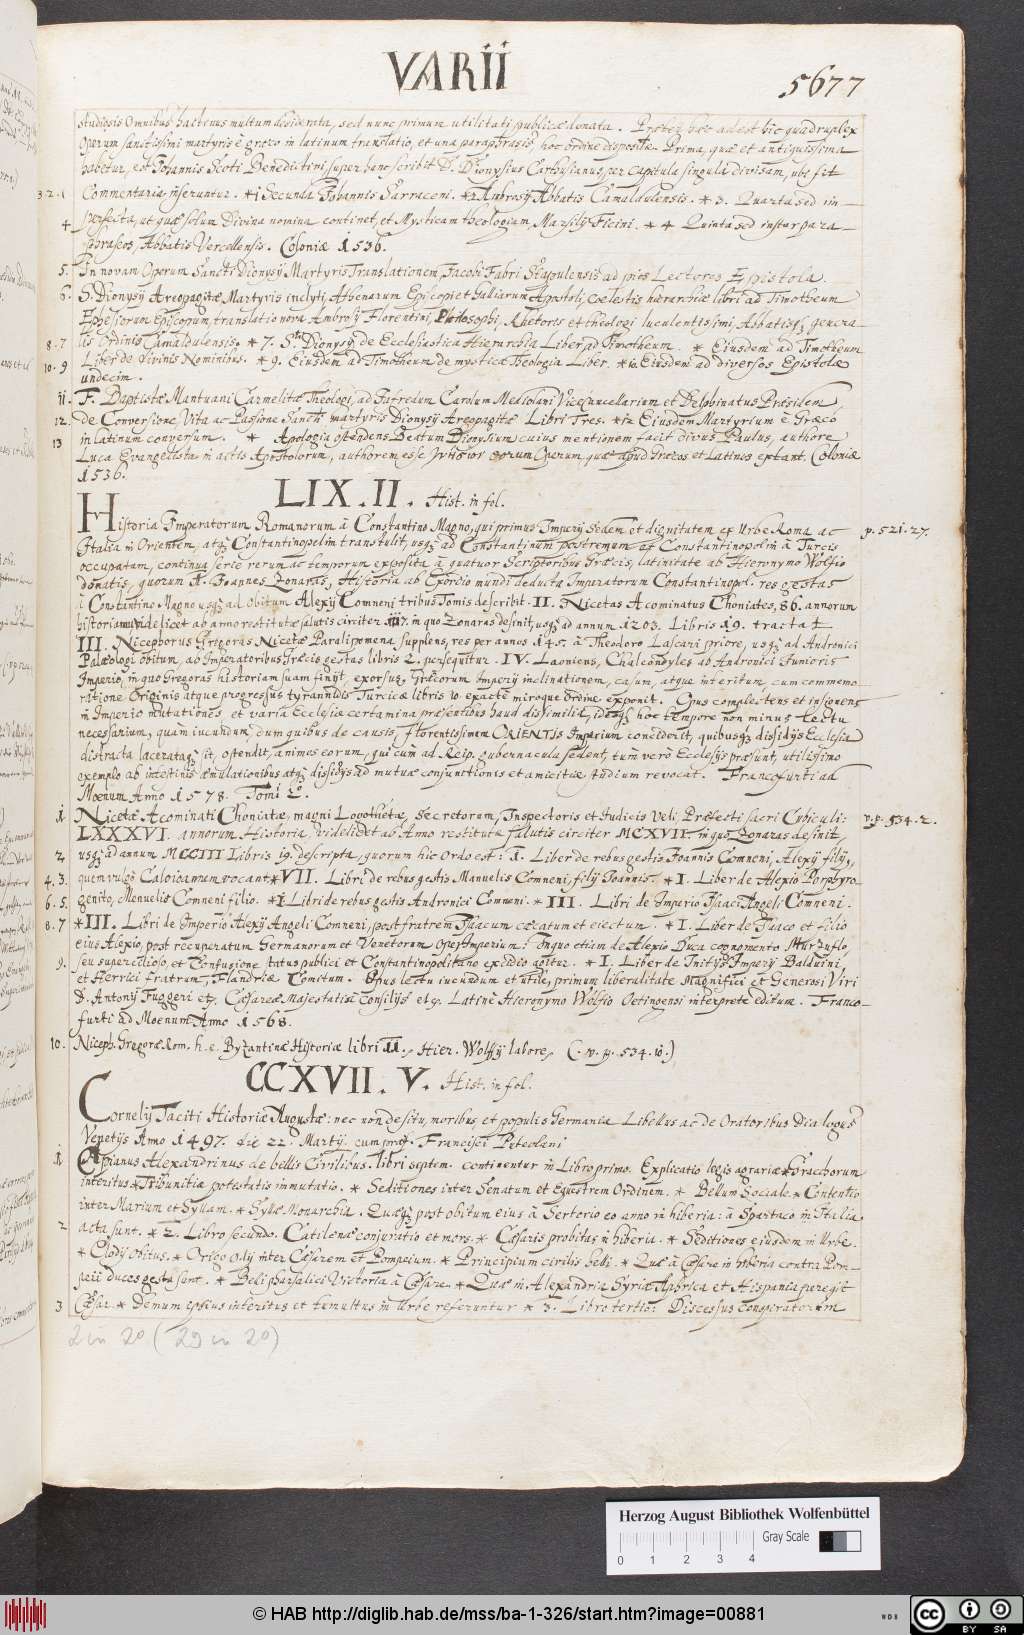 VARII
5677
studiosis Omnibus hactenus multum desiderata, sed nunc primum utilitati publicæ donata. Præter hæc adest hic quadruplex
Operum sanctissimi martyris è græco in latinum translatio, et una paraphrasis, hoc ordine dispositæ. Prima, quæ et antiquissima
habetur, est Johannis Scoti Benedictini super hanc scribit D. Dionysius Carthusianus, per capitula singula divisam, ubi sit
3. 2. 1 Commentaria inseruntur. * 1 Secunda Johannis Sarraceni. *2 Ambrosij Abbatis Camaldulensis. * 3. Quarta sed im-
4 perfecta, ut quæ solum Divina nomina continet, et Mysticam theologiam, Marsilij Ficini. * 4 Quinta sed instar para-
phraseos, Abbatis Vercellensis. Coloniæ 1536.
5. In novam Operum Sancti Dionysij Martyris Translationem, Jacobi Fabri Stapulensis ad pios Lectores Epistola.
6. S. Dionysij Areopagitæ Martyris inclyti, Athenarum Episcopi et Galliarum Apostoli, cœlestis hierarchiæ libri ad Timotheum
Ephesiorum Episcopum, translatio nova Ambrosij Florentini, Philosophi, Rhetoris et theologi luculentissimi, Abbatisq genera-
8. 7 lis Ordinis Camaldulensis. * 7. Sti Dionysij de Ecclesiastica Hierarchia Liber ad Timotheum. * Eiusdem ad Timotheum
10. 9 Liber de Divinis Nominibus. * 9. Eiusdem ad Timotheum de mystica Theologia Liber. *10. Eiusdem ad diversos Epistolæ
undecim.
11. F. Baptistæ Mantuani Carmelitæ Theologi, ad Jafredum Carolum Mediolani Vice Cancellarium et Delphinatus Præsidem,
12. de Conversione, Vita ac Passione Sancti martyris Dionysij Areopagitæ Libri Tres. *12 Eiusdem Martyrium è Græco
13 in latinum conversum. * Apologia ostendens Beatum Dionysium cuius mentionem facit divus Paulus, authore
Luca Evangelista in actis Apostolorum, authorem esse eorum Operum, quæ apud Græcos et Latinos extant. Coloniæ
1536.
LIX. II. Hist. in fol.
Historia Imperatorum Romanorum à Constantino Magno, qui primus Imperij Sedem et dignitatem ex Urbe Roma ac p. 521. 27.
Italia in Orientem, atq Constantinopolim transtulit, usq ad Constantinum postremum et Constantinopolim à Turcis
occupatam, continua serie rerum ac temporum exposita à quatuor Scriptoribus Græcis, latinitate ab Hieronymo Wolfio
donatis, quorum I. Joannes Zonaras, Historia ab Exordio mundi deducta Imperatorum Constantinopol. res gestas
à Constantino Magno usq ad obitum Alexij Comneni tribus Tomis describit. II. Nicetas Acominatus Choniates, 86. annorum
historiam videlicet ab anno restitutæ salutis circiter 1117. in quo Zonaras desinit, usq ad annum 1203. Libris 19. tractat
III. Nicephorus Gregoras Nicetæ Paralipomena supplens, res per annos 145. à Theodoro Lascari priore, usq ad Andronici
Palæologi obitum, ab Imperatoribus Græcis gestas libris 2. persequitur. IV. Laonicus, Chalcondyles ab Andronici Junioris
Imperio, in quo Gregoras historiam suam finijt, exorsus, Græcorum Imperij inclinationem, casum, atque interitum cum commemo-
ratione Originis atque progressus tyrannidis Turcicæ libris 10. exacte miroque ordine exponit. Opus complectens et insignens
in Imperio mutationes et varia Ecclesiæ certamina præsentibus haud dissimilia, idcoq hoc tempore non minus lectu
necessarium, quàm iucundum, dum quibus de causis, florentissimum ORIENTIS Imperium conciderit, quibusq dissidijs Ecclesia
distracta laceratáq sit, ostendit, animos eorum, qui cùm ad Reip. gubernacula sedent, tùm verò Ecclesijs præsunt, utilissimo
exemplo ab intestinis æmulationibus atq dissidijs ad mutuæ conjunctionis et amicitiæ studium revocat. Francofurti ad
Mœnum Anno 1578. Tomi 2.
1. Nicetæ Acominati Choniatæ, magni Logothetæ, Secretorum, Inspectoris et Judicis Veli, Præfecti sacri Cubiculi: v. p. 534. 2.
LXXXVI. annorum Historia, videlicet ab Anno restitutæ salutis circiter MCXVII. in quo Zonaras desinit,
2. usq ad annum MCCIII Libris 19. descripta, quorum hic Ordo est: 1. Liber de rebus gestis Joannis Comneni, Alexij filij,
4. 3. quem vulgo Caloioannem vocant *VII. Libri de rebus gestis Manuelis Comneni, filij Joannis. * I. Liber de Alexio Porphyro-
6. 5. genito, Manuelis Comneni filio. *II Libri de rebus gestis Andronici Comneni. * III. Libri de Imperio Isaaci Angeli Comneni.
8. 7 *III. Libri de Imperio Alexij Angeli Comneni, post fratrem Isaacum cæcatum et eiectum. * I. Liber de Isaaco et filio
eius Alexio, post recuperatum Germanorum et Venetorum ope Imperium: In quo etiam de Alexio Duca cognomento Murzuflo,
9. seu supercilioso, et confusione status publici et Constantinopolitano excidio agitur. * I. Liber de Initijs Imperij Balduini,
et Herrici fratrum, Flandriæ Comitum. Opus lectu iucundum et utile, primum liberalitate Magnifici et Generosi Viri
D. Antonij Fuggeri etc. Cæsareæ Majestatis à Consilijs etc. Latinè Hieronymo Wolfio Oetingensi interprete editum. Franco-
furti ad Moenum Anno 1568.
10. Niceph. Gregoræ Rom. h. e. Byzantinæ Historiæ libri XI., Hier. Wolfij labore, (. v. p. 534. 10.)
CCXVII. V. Hist. in fol.
Cornelij Taciti Historiæ Augustæ: nec non de situ, moribus, et populis Germaniæ Libellus ac de Oratoribus Dialogus
Venetijs Anno 1497. die 22. Martij. cum præf. Francisci Puteolani
1 Appianus Alexandrinus de bellis Civilibus. libri septem. continentur in Libro primo. Explicatio legis agrariæ * Gracchorum
interitus * Tribunitiæ potestatis immutatio. * Seditiones inter Senatum et Equestrem Ordinem. * Bellum Sociale * Contentio
inter Marium et Syllam. * Syllæ Monarchia. Quæq post obitum eius à Sertorio eo anno in hiberia: à Spartaco in Italia
2 acta sunt. * 2. Libro secundo. Catilinæ conjuratio et mors. * Cæsaris probitas in hiberia. * Seditiones eiusdem in Urbe.
* Clodij obitus. * Origo odij inter Cæsarem et Pompeium. * Principium civilis belli. * Quæ à Cæsare in hiberia contra Pom-
peii duces gesta sunt. * Belli pharsalici Victoria à Cæsare. * Quæ in Alexandria Syria Aphrica et Hispania peregit
3 Cæsar. * Demum ipsius interitus et tumultus in Urbe referuntur * 3. Libro tertio: Discessus conspiratorum
2 in 2° (29 in 2°)
Herzog August Bibliothek Wolfenbüttel
Gray Scale
0 1 2 3 4
© HAB http://diglib.hab.de/mss/ba-1-326/start.htm?image=00881
WDB
cc BY SA